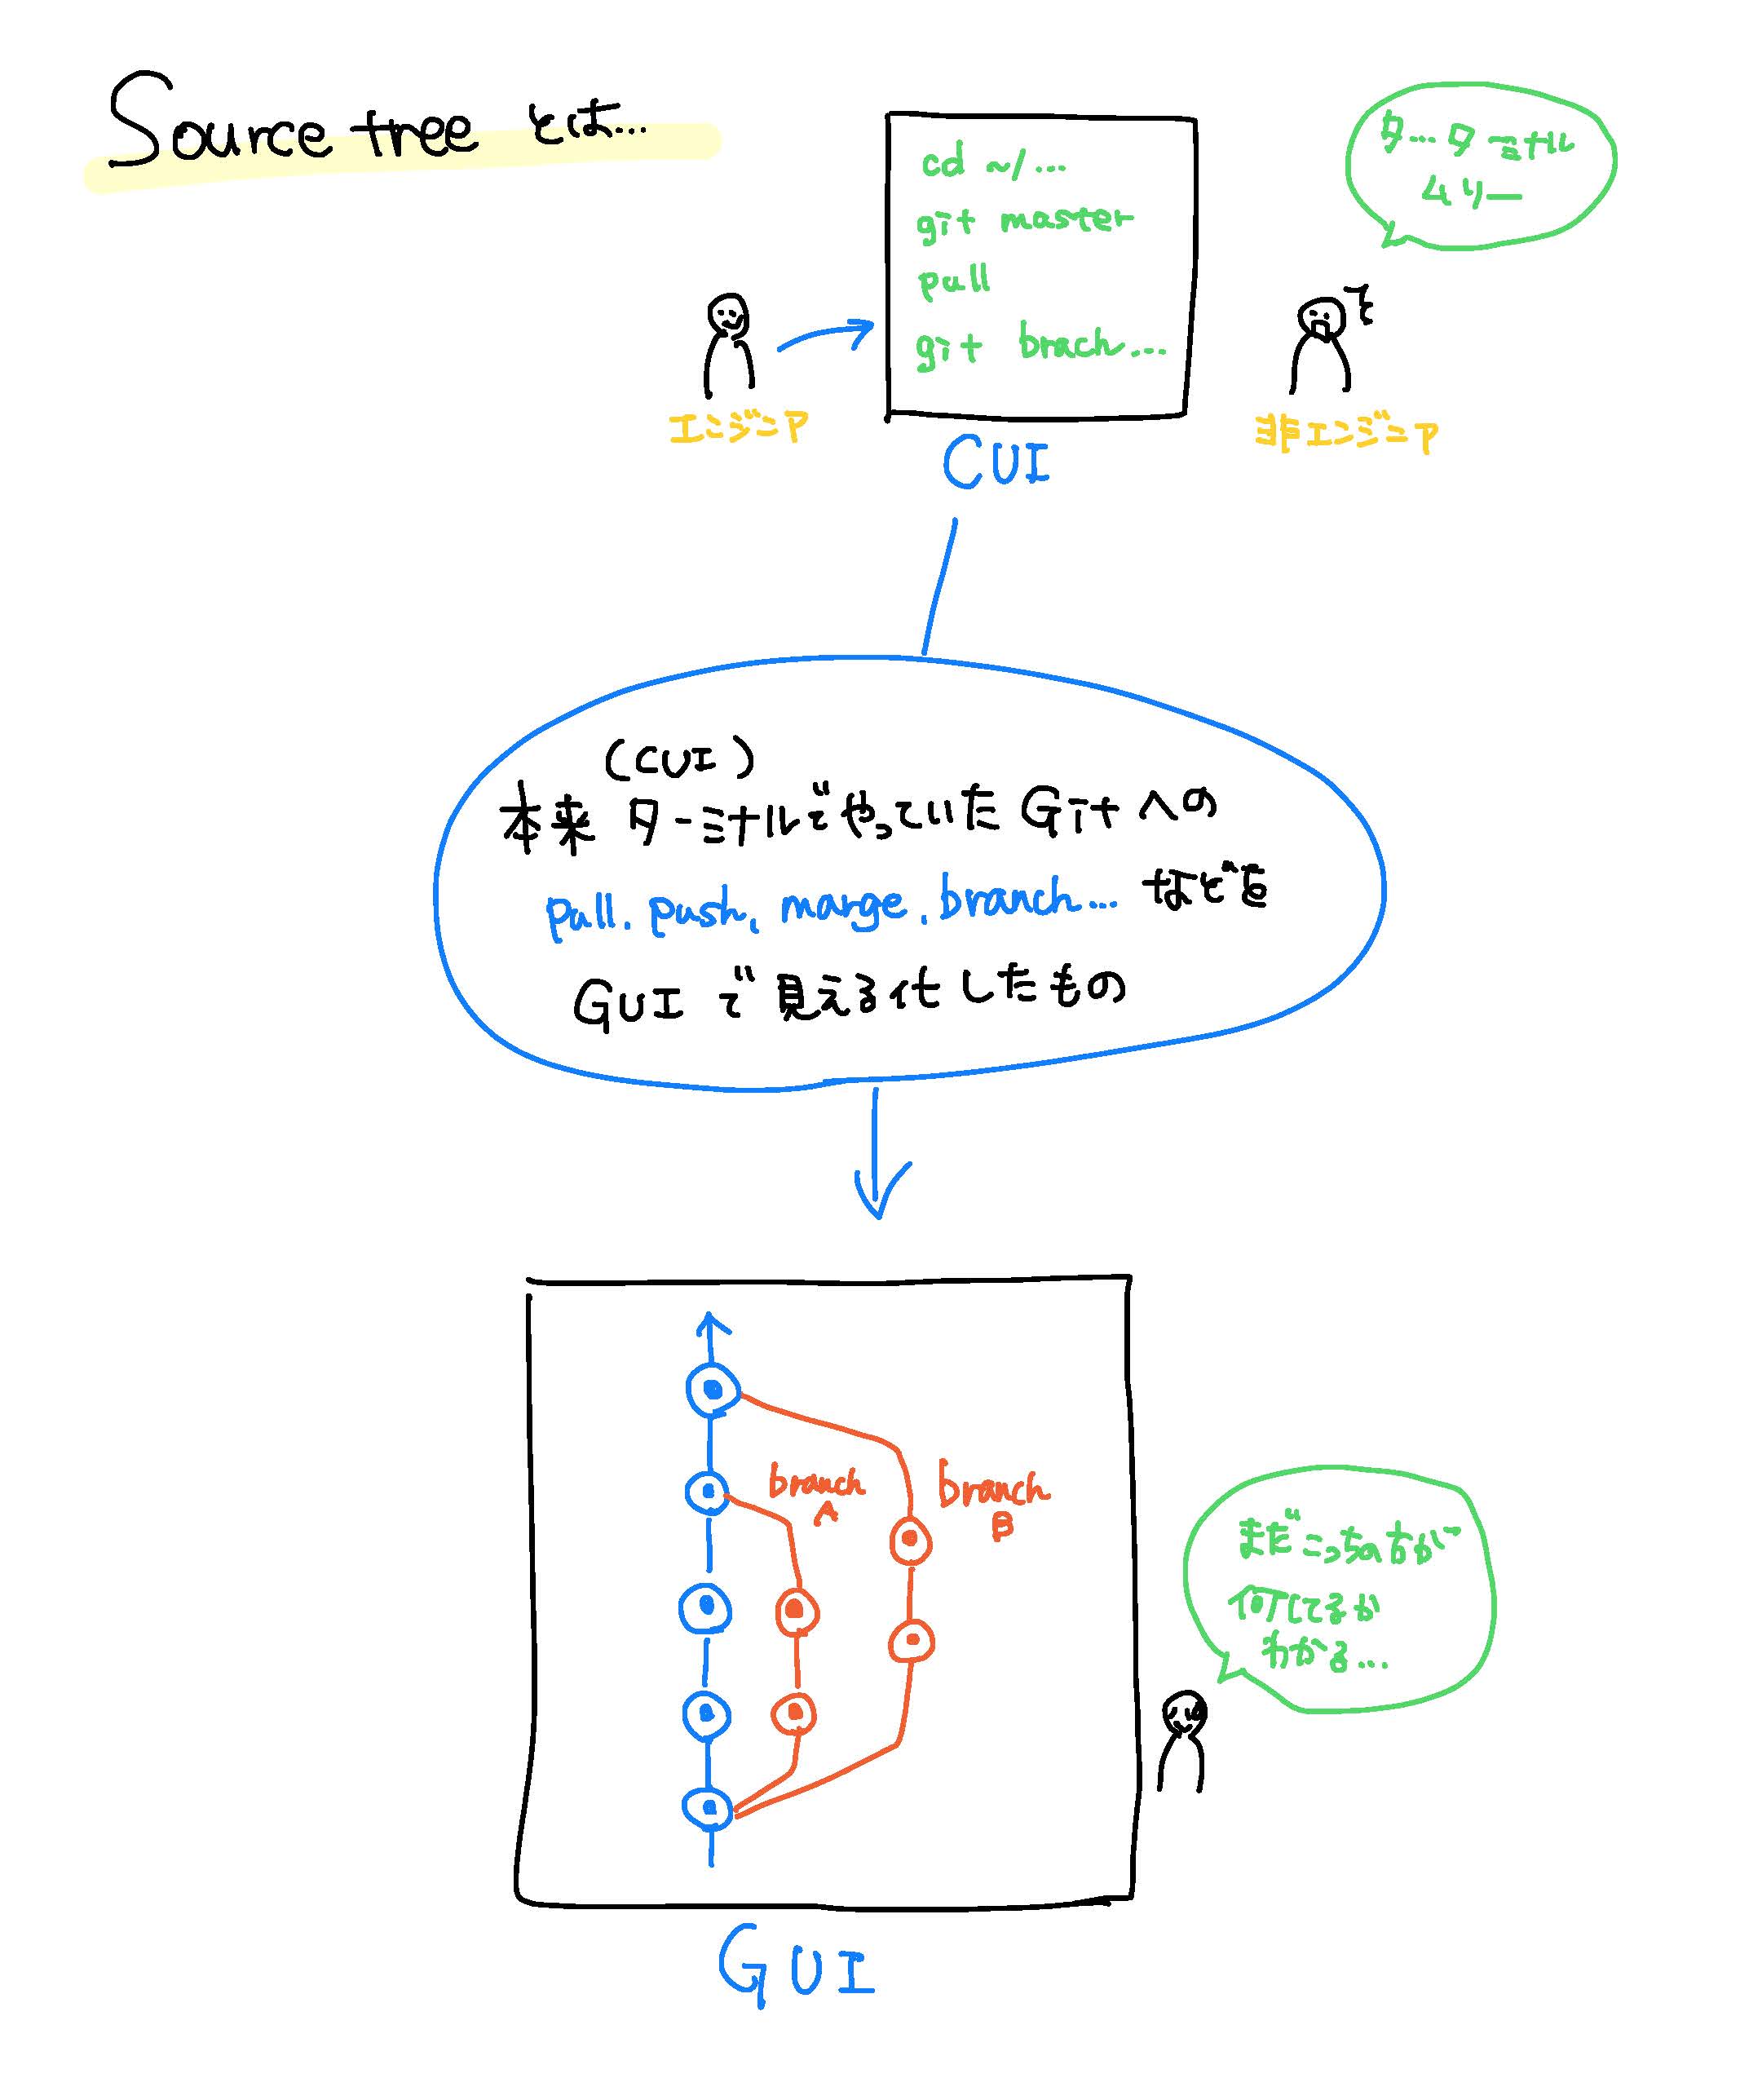 Source tree とは…
cd ~/…
git master
pull
git brach…
タ…ターミナル
ムリー
エンジニア
非エンジニア
CUI
(CUI)
本来 ターミナルでやっていた Gitへの
pull. push, marge, branch… などを
GUI で 見える化したもの
branch
A
branch
B
まだこっちの方が
何してるか
わかる…
GUI